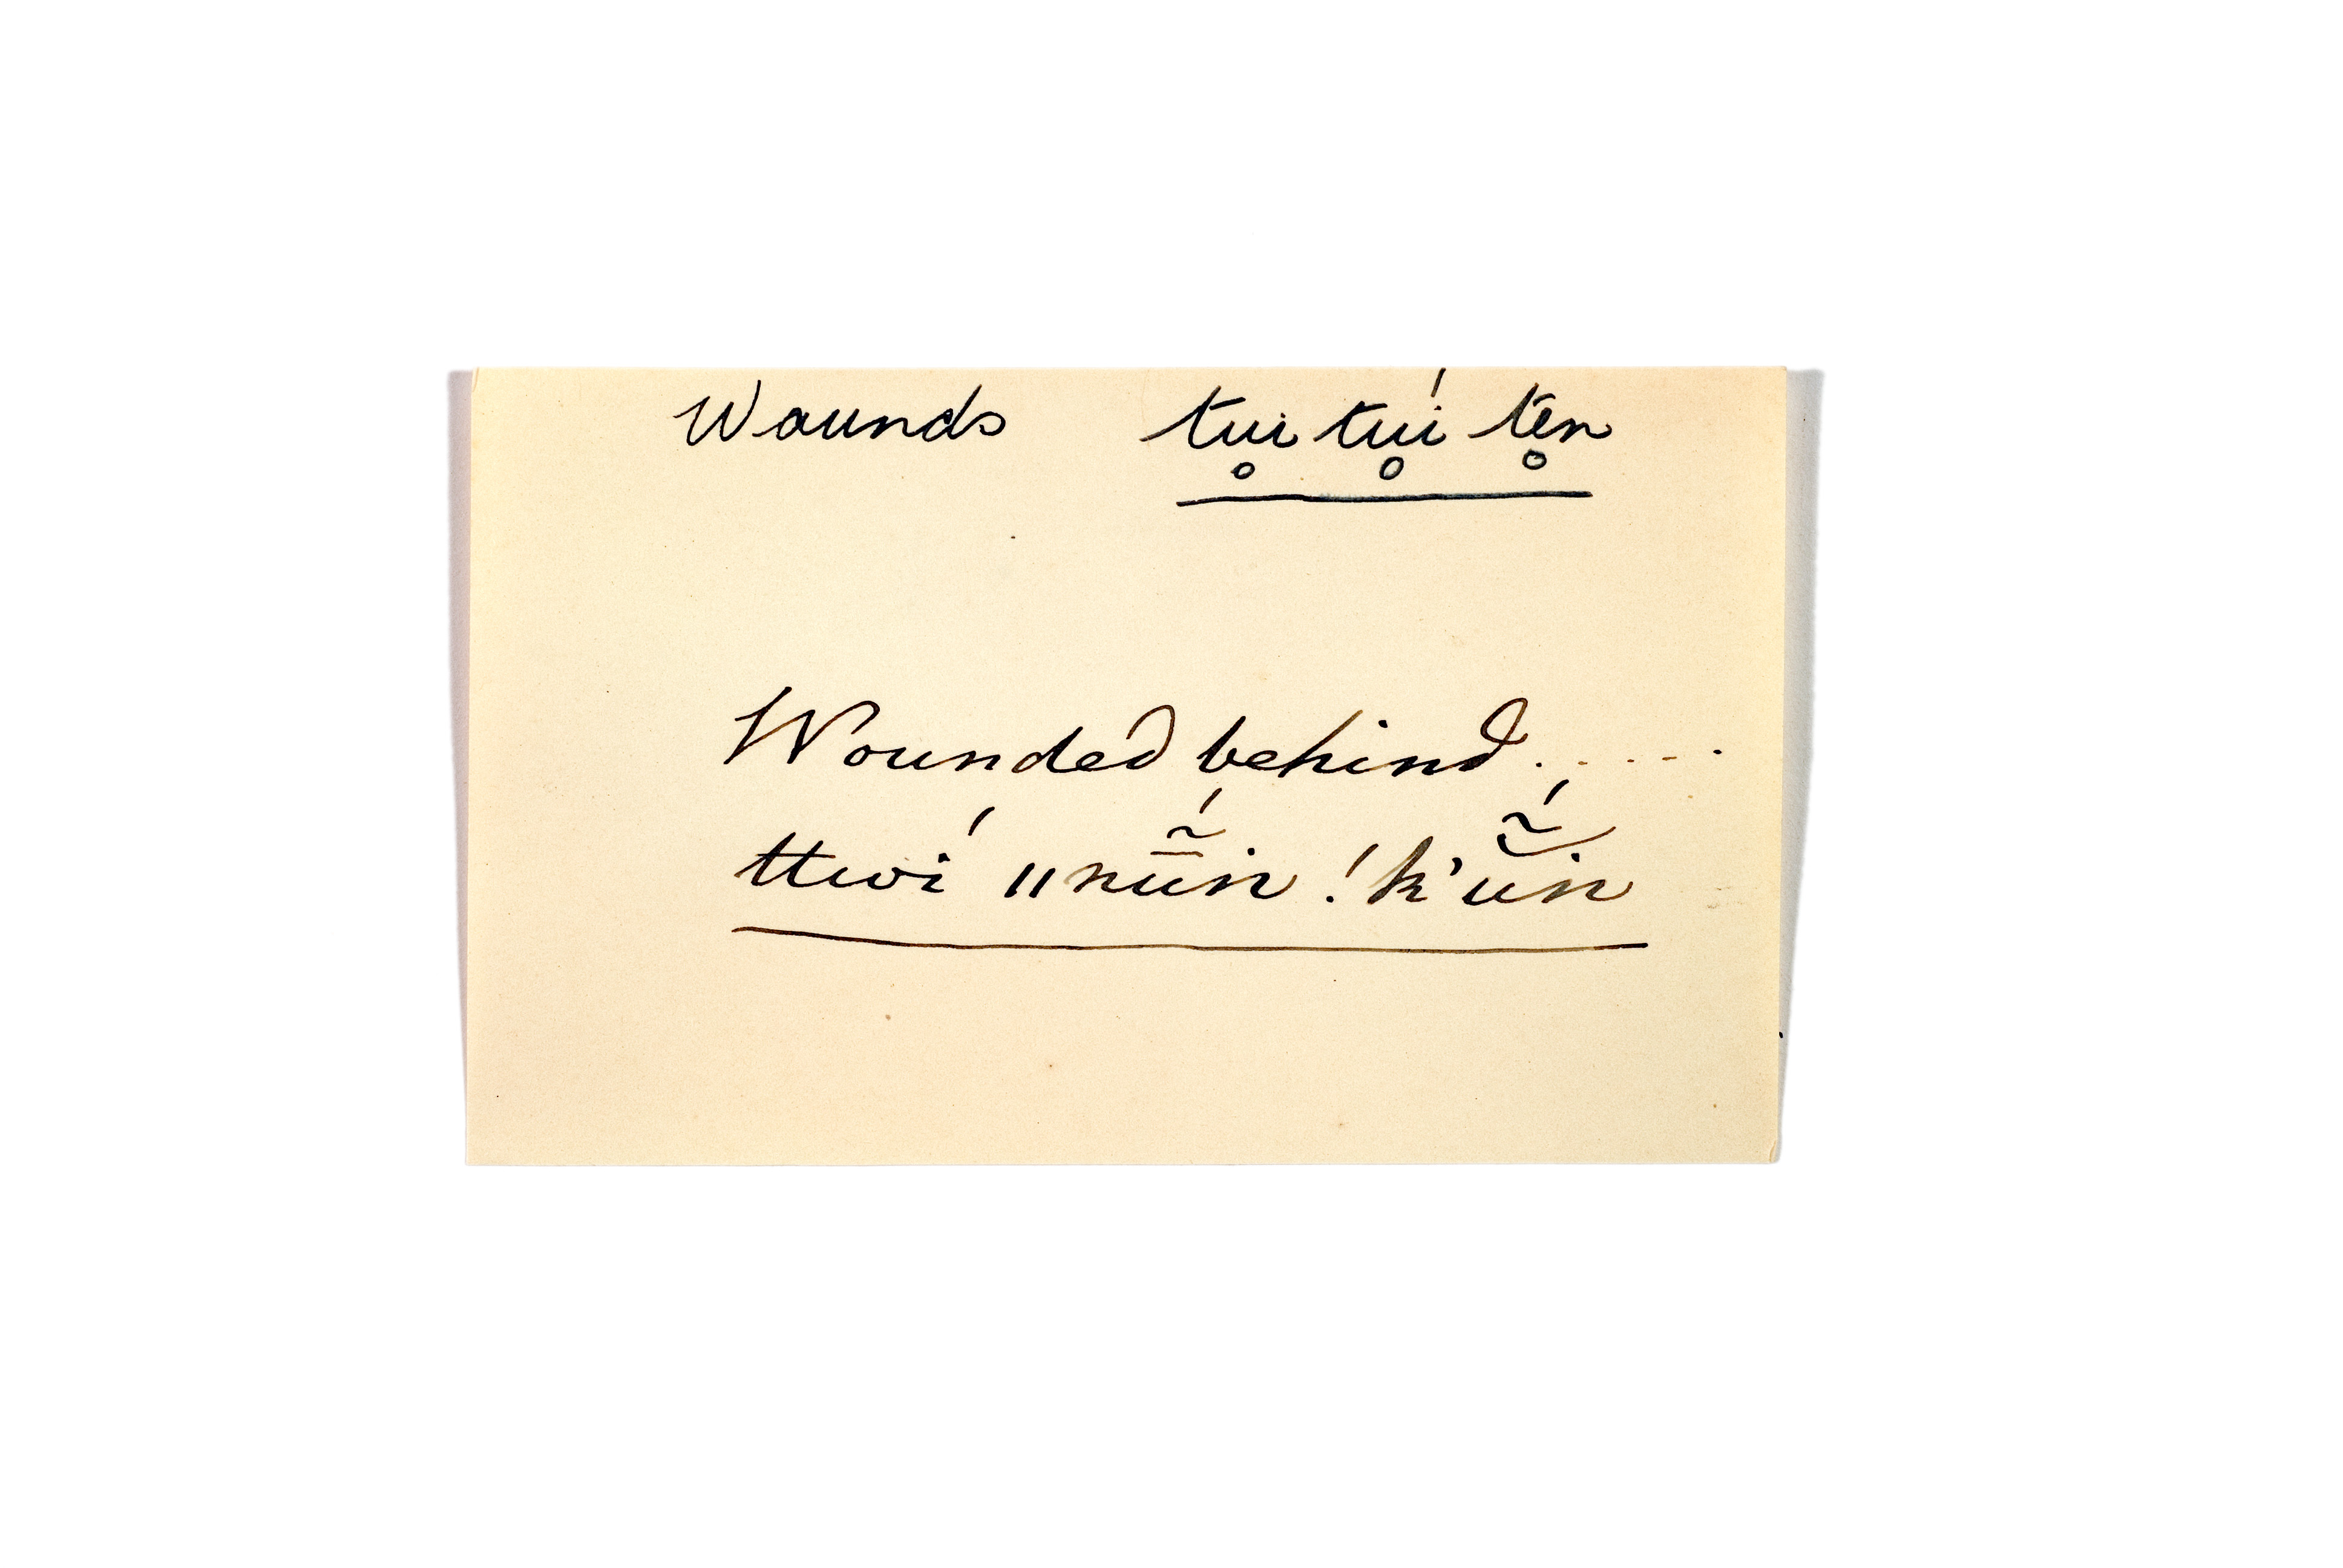 Wounds tu̥i tu̥í te̥n
Wounded behind . . . . .
ttwí ǁnū̃́in !k'ŭ̃́in